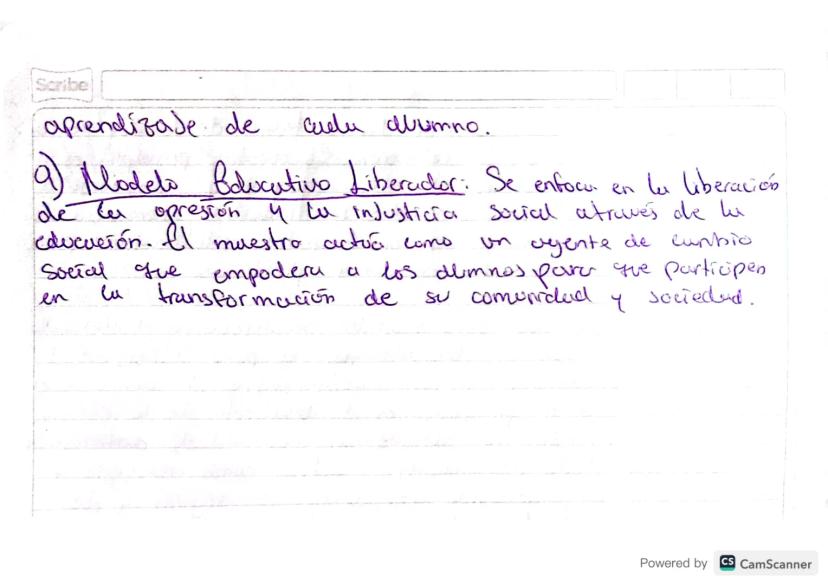 Scribe
aprendizaje de cada alumno.
9) Modelo Educativo Liberador: Se enfoca en la liberación
de la opresión y la injusticia social através de la
educación. El maestro actúa como un agente de cambio
social que empodera a los alumnos para que participen
en la transformación de su comunidad y sociedad.
Powered by CS CamScanner